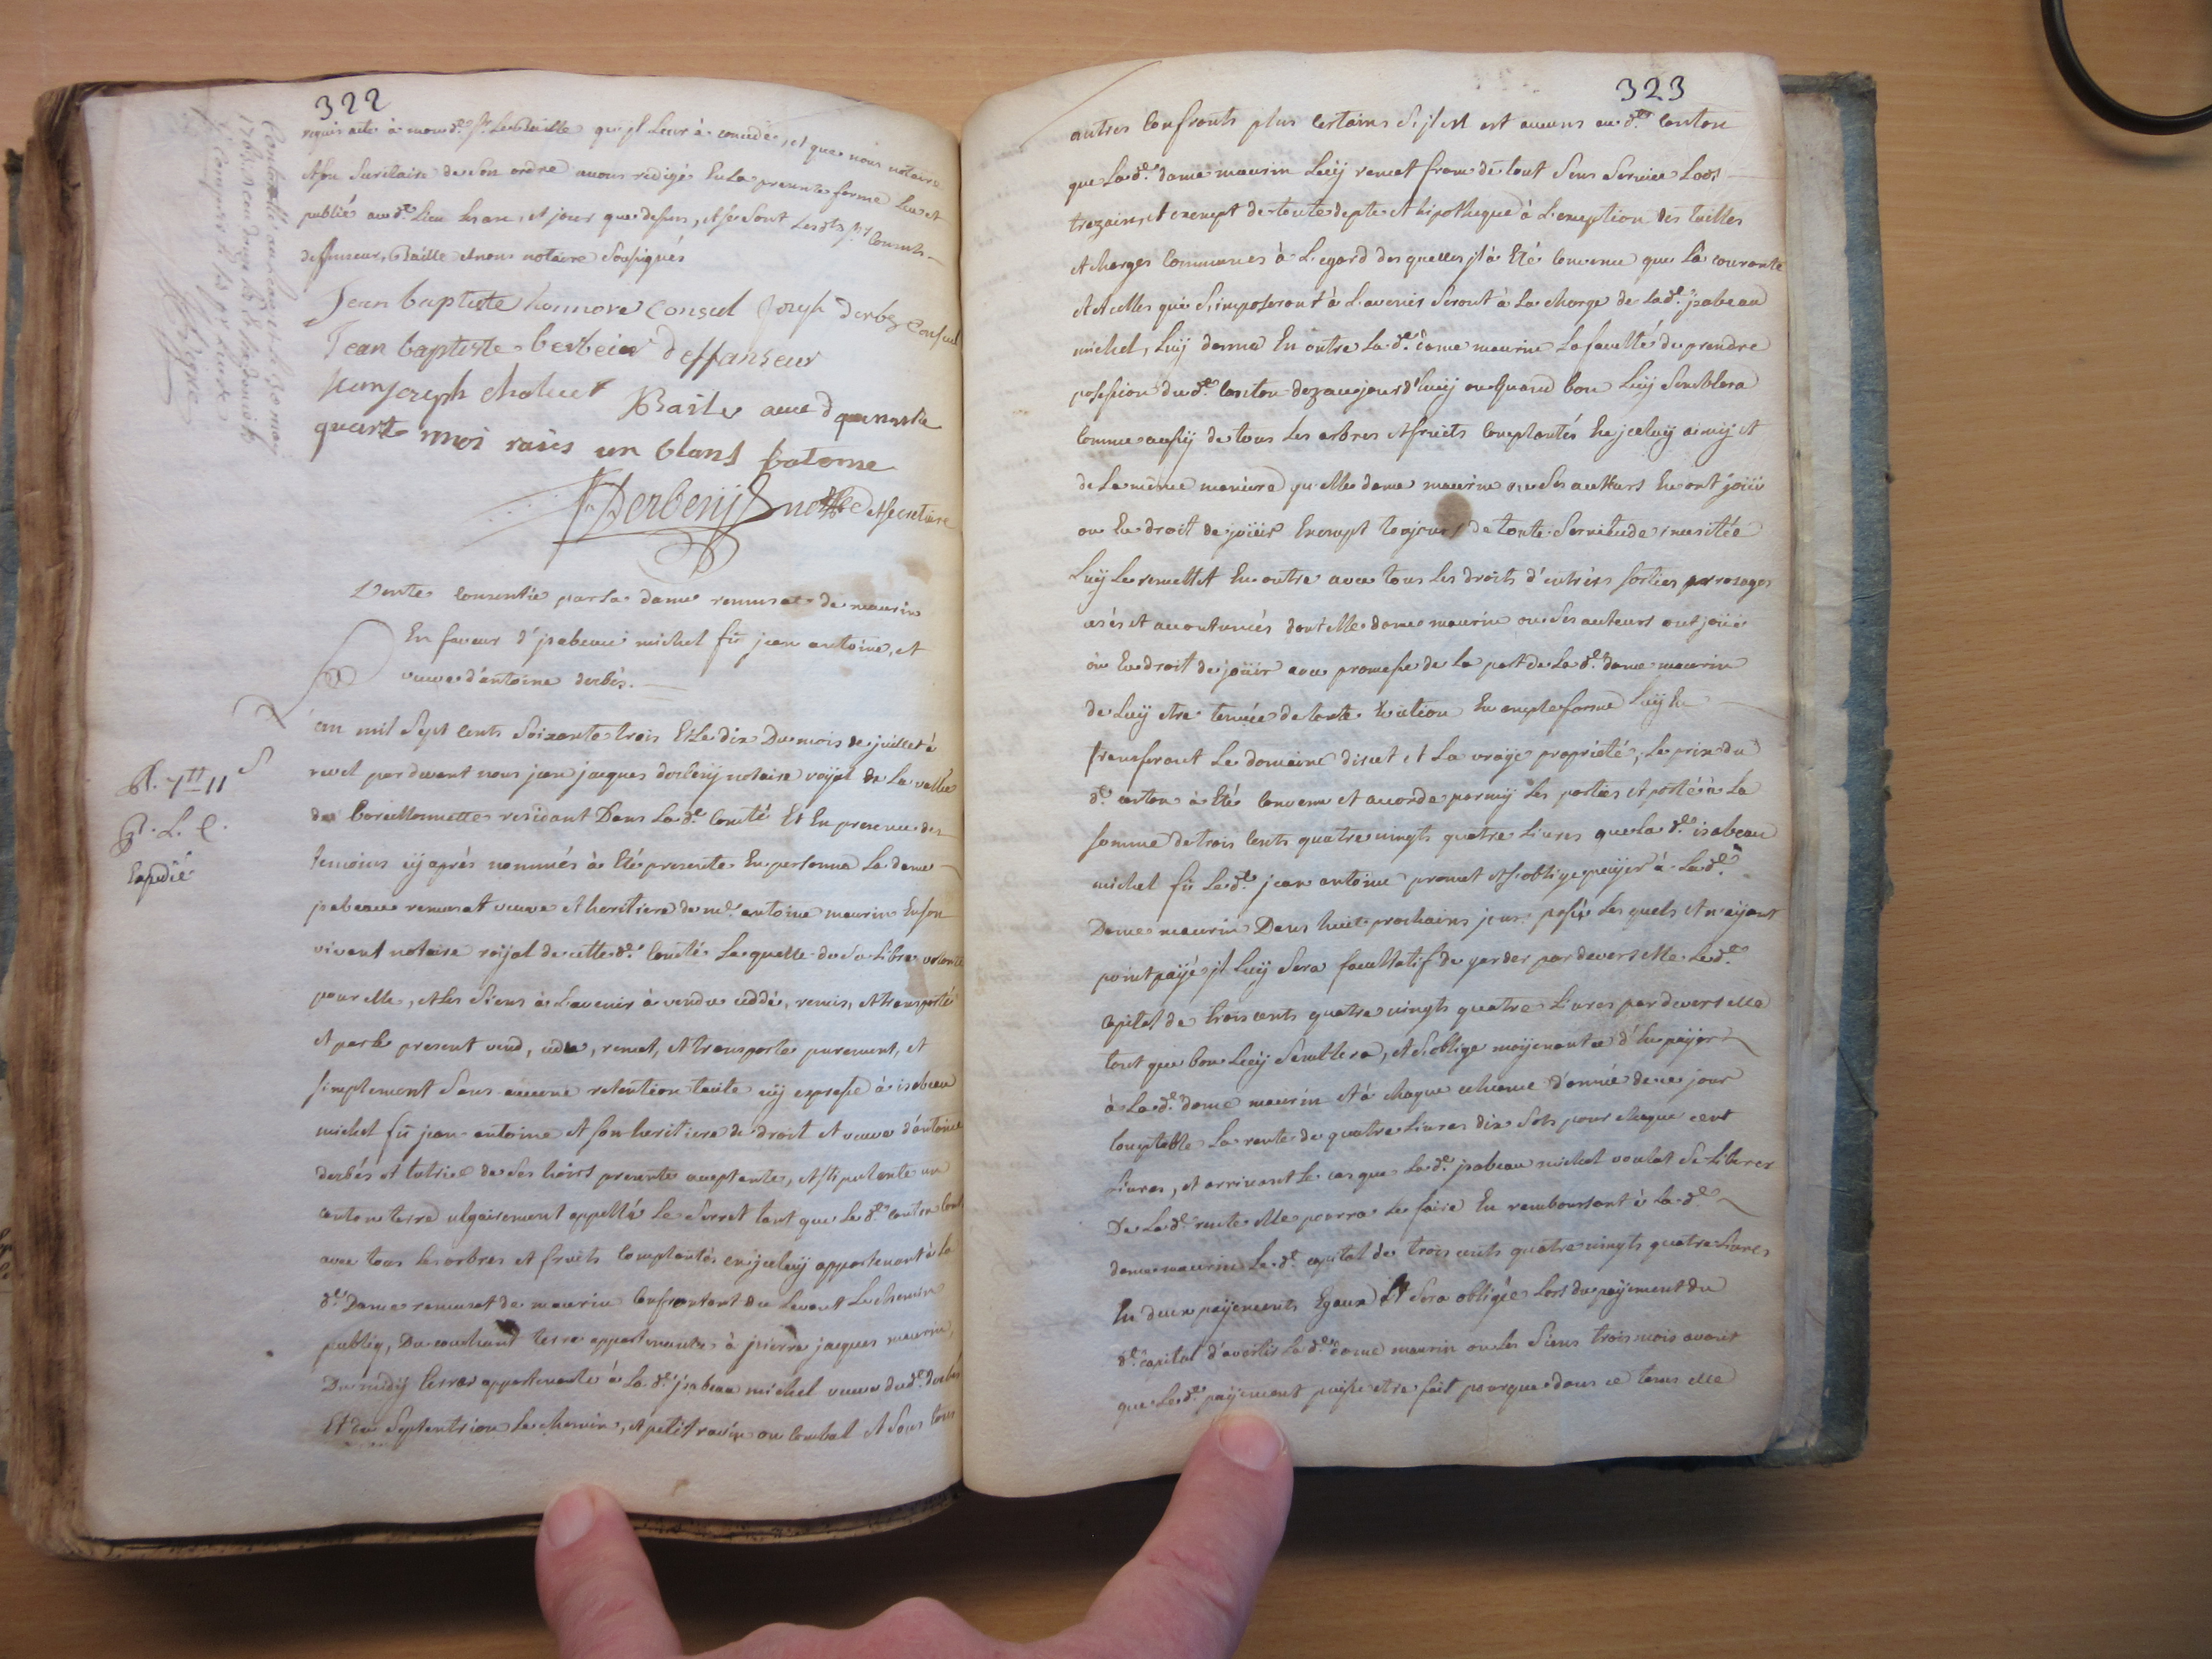 322
requis acte à mond.t Sr. Le Baille qu'jl Leur à concede, et que nous notaire
et son Secrétaire de Son ordre avons redigé En La presente forme Leu et
publié aud.t Lieu heure, et jour que dessus, et se Sont Lesd.ts Srs Consuls
deffenseur, Baille et nous notaire Sousignés
Jean baptiste honnore consul Joseph derbez consul
Jean baptiste berbeier deffanseur
jean joseph chaluet Baile
quart moi
Derbesy no.re et secretaire
Vente consentie par La dame remusat de maurin
En faveur d'jsabeau michel fû jean antoine, et
veuve d'antoine derbés.
L'an mil Sept cents Soixante trois Et Le dix Du mois de juillet à
revel par devant nous jean jacques derbesy notaire royal de La vallée
de barcellonnette residant Dans La d.e Comté Et En presence des
temoins cy après nommés à Eté presente En personne La dame
jsabeau remusat veuve et heritiere de me. antoine maurin En son
vivant notaire roijal de cette d.e Comté Laquelle de Sa Libre volonté
pour elle, et Les Siens à L'avenir à vendu ceddé, remis, et transporté
et par Le present vend, cede, remet, et transporte purement, et
simplement Sans aucune retention tacite n'y expresse à isabeau
michel fû jean antoine et son heritiere de droit et veuve d'antoine
derbés et tutrice de Ses hoirs presente acceptante, et stipulante un
canton terre ulgairement appellé Le Serret tant que Le d.t canton
avec tous Les arbres et fruits complantés en jceluy appartenant à La
d.e Dame remusat de maurin Confrontant du Levant Le chemin
publiq, Du couchant terre appartenante à pierre jacques maurin,
Du midy terres appartenante à La d.e jsabeau michel veuve dud.t derbés
Et du Septentrion Le chemin, et petit ravin ou Combal et Sous tous
R. 7tt 11 s
R. L. C.
Expedié
323
autres Confronts plus Certains S'jl en est aucuns aud.t Canton
que La d.e dame maurin Luy remet franc de tout Sens Service Lods
trezains, et exempt de toute depte et hipotheque à L'exception des tailles
et charges Communes à L'egard des quelles jl à Eté Convenu que La courante
et celles qui S'imposeront à L'avenir Seront à La charge de Lad.e jsabeau
michel, Luy donne En outre La d.e dame maurin La faculté de prendre
possession dud.t Canton dez aujourd'huy ou Quand bon Luy Semblera
Comme aussy de tous Les arbres et fruits Complantés En jceluy ainsy et
de La même maniere qu'elle dame maurin ou Ses autheurs En ont joüi
ou En droit de joüir Exempt toujours de toute Servitude inusitée
Luy Le remettet En outre avec tous Les droits d'entrées sorties arrosages
usés et accoutumés dont elle dame maurin ou Ses auteurs ont joüi
ou En droit de joüir avec promesse de La part de La d.e dame maurin
de Luy etre tenüe de toute Eviction En ample forme Luy En
transferant Le domaine direct et La vraye proprieté, Le prix du
d.t canton à Eté Convenu et accordé parmy Les parties et porté à La
somme de trois Cents quatre vingts quatre Livres que La d.e isabeau
michel fû Le d.t jean antoine promet et s'oblige payer à La d.e
Dame maurin Dans huit prochains jours passés Les quels et n'ayant
point payé jl Luy Sera facultatif de garder par devers elle Led.t
capital de trois cents quatre vingts quatre Livres par devers elle
tant que bon Luy Semblera, et S'oblige moyenant ce d'En payer
à La d.e dame maurin et à chaque echeance d'année de ce jour
Comptable La rente de quatre Livres dix Sols pour chaque cent
Livres, et arrivant Le cas que Lad.e jsabeau michel voulut Se Liberer
De La d.e rente elle pourra Le faire En remboursant à La d.e
dame maurin Le d.t capital de trois cents quatre vingts quatre Livres
En deux payements Egaux et Sera obligée Lors du payement du
d.t capital d'avertir La d.e dame maurin ou Les Siens trois mois avant
que Le d.t payement puisse etre fait pour que dans ce tems elle